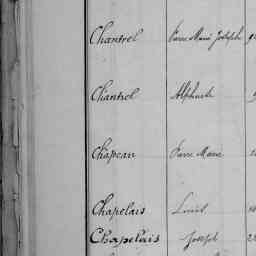 Chantrel Pierre Marie Joseph
Chantrel Alphonse
Chapeau Pierre Marie
Chapelais Louis
Chapelais Joseph